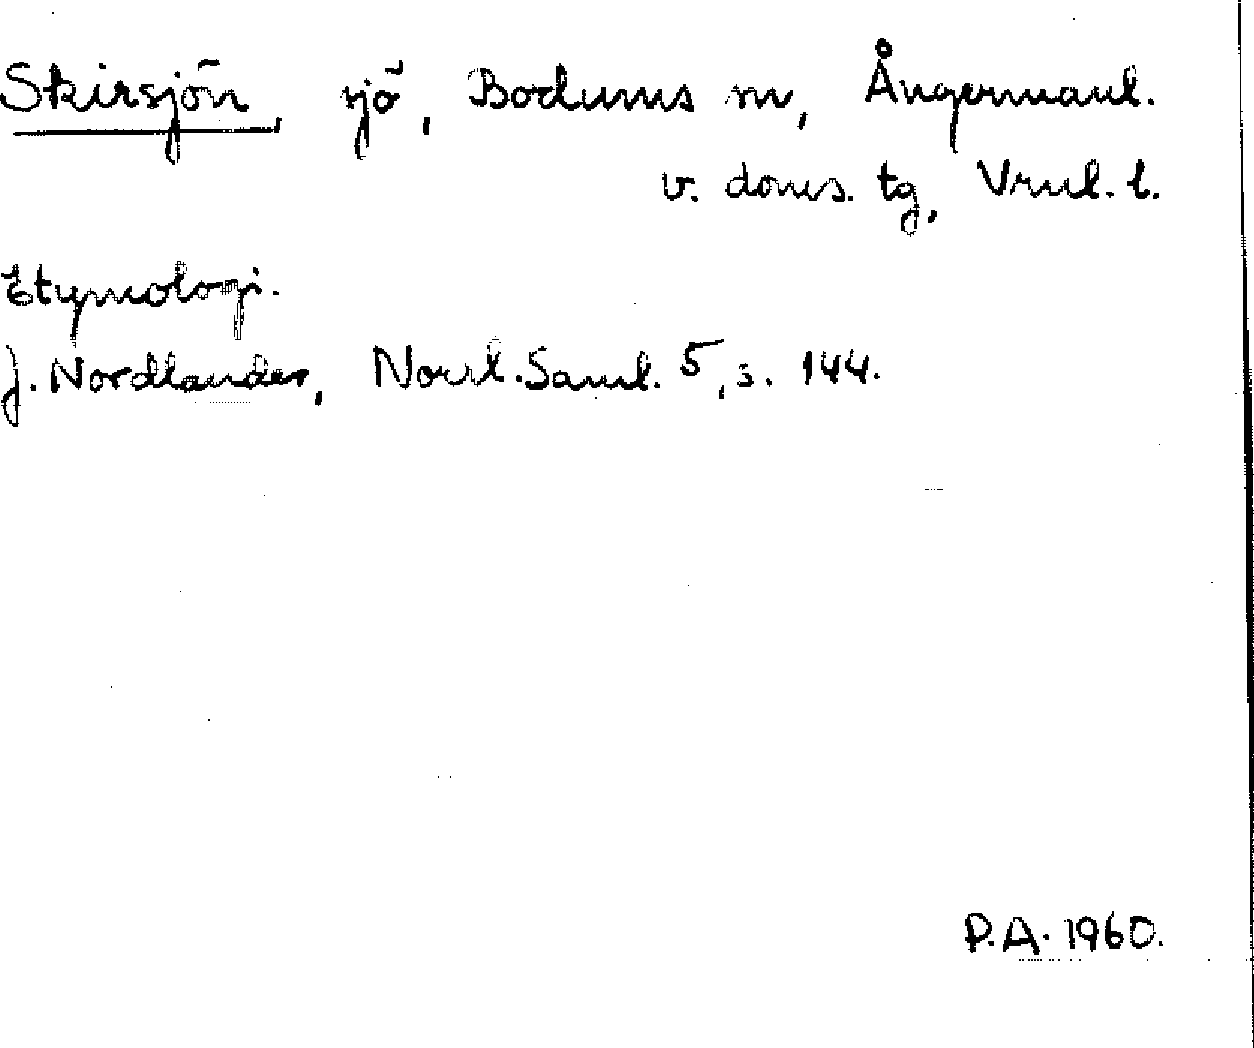 Skirsjön, sjö, Bodums sn, Ångermanl.
v. doms. tg, Vrnl. l.
Etymologi.
J. Nordlander, Norrl. Saml. 5, s. 144.
P.A. 1960.